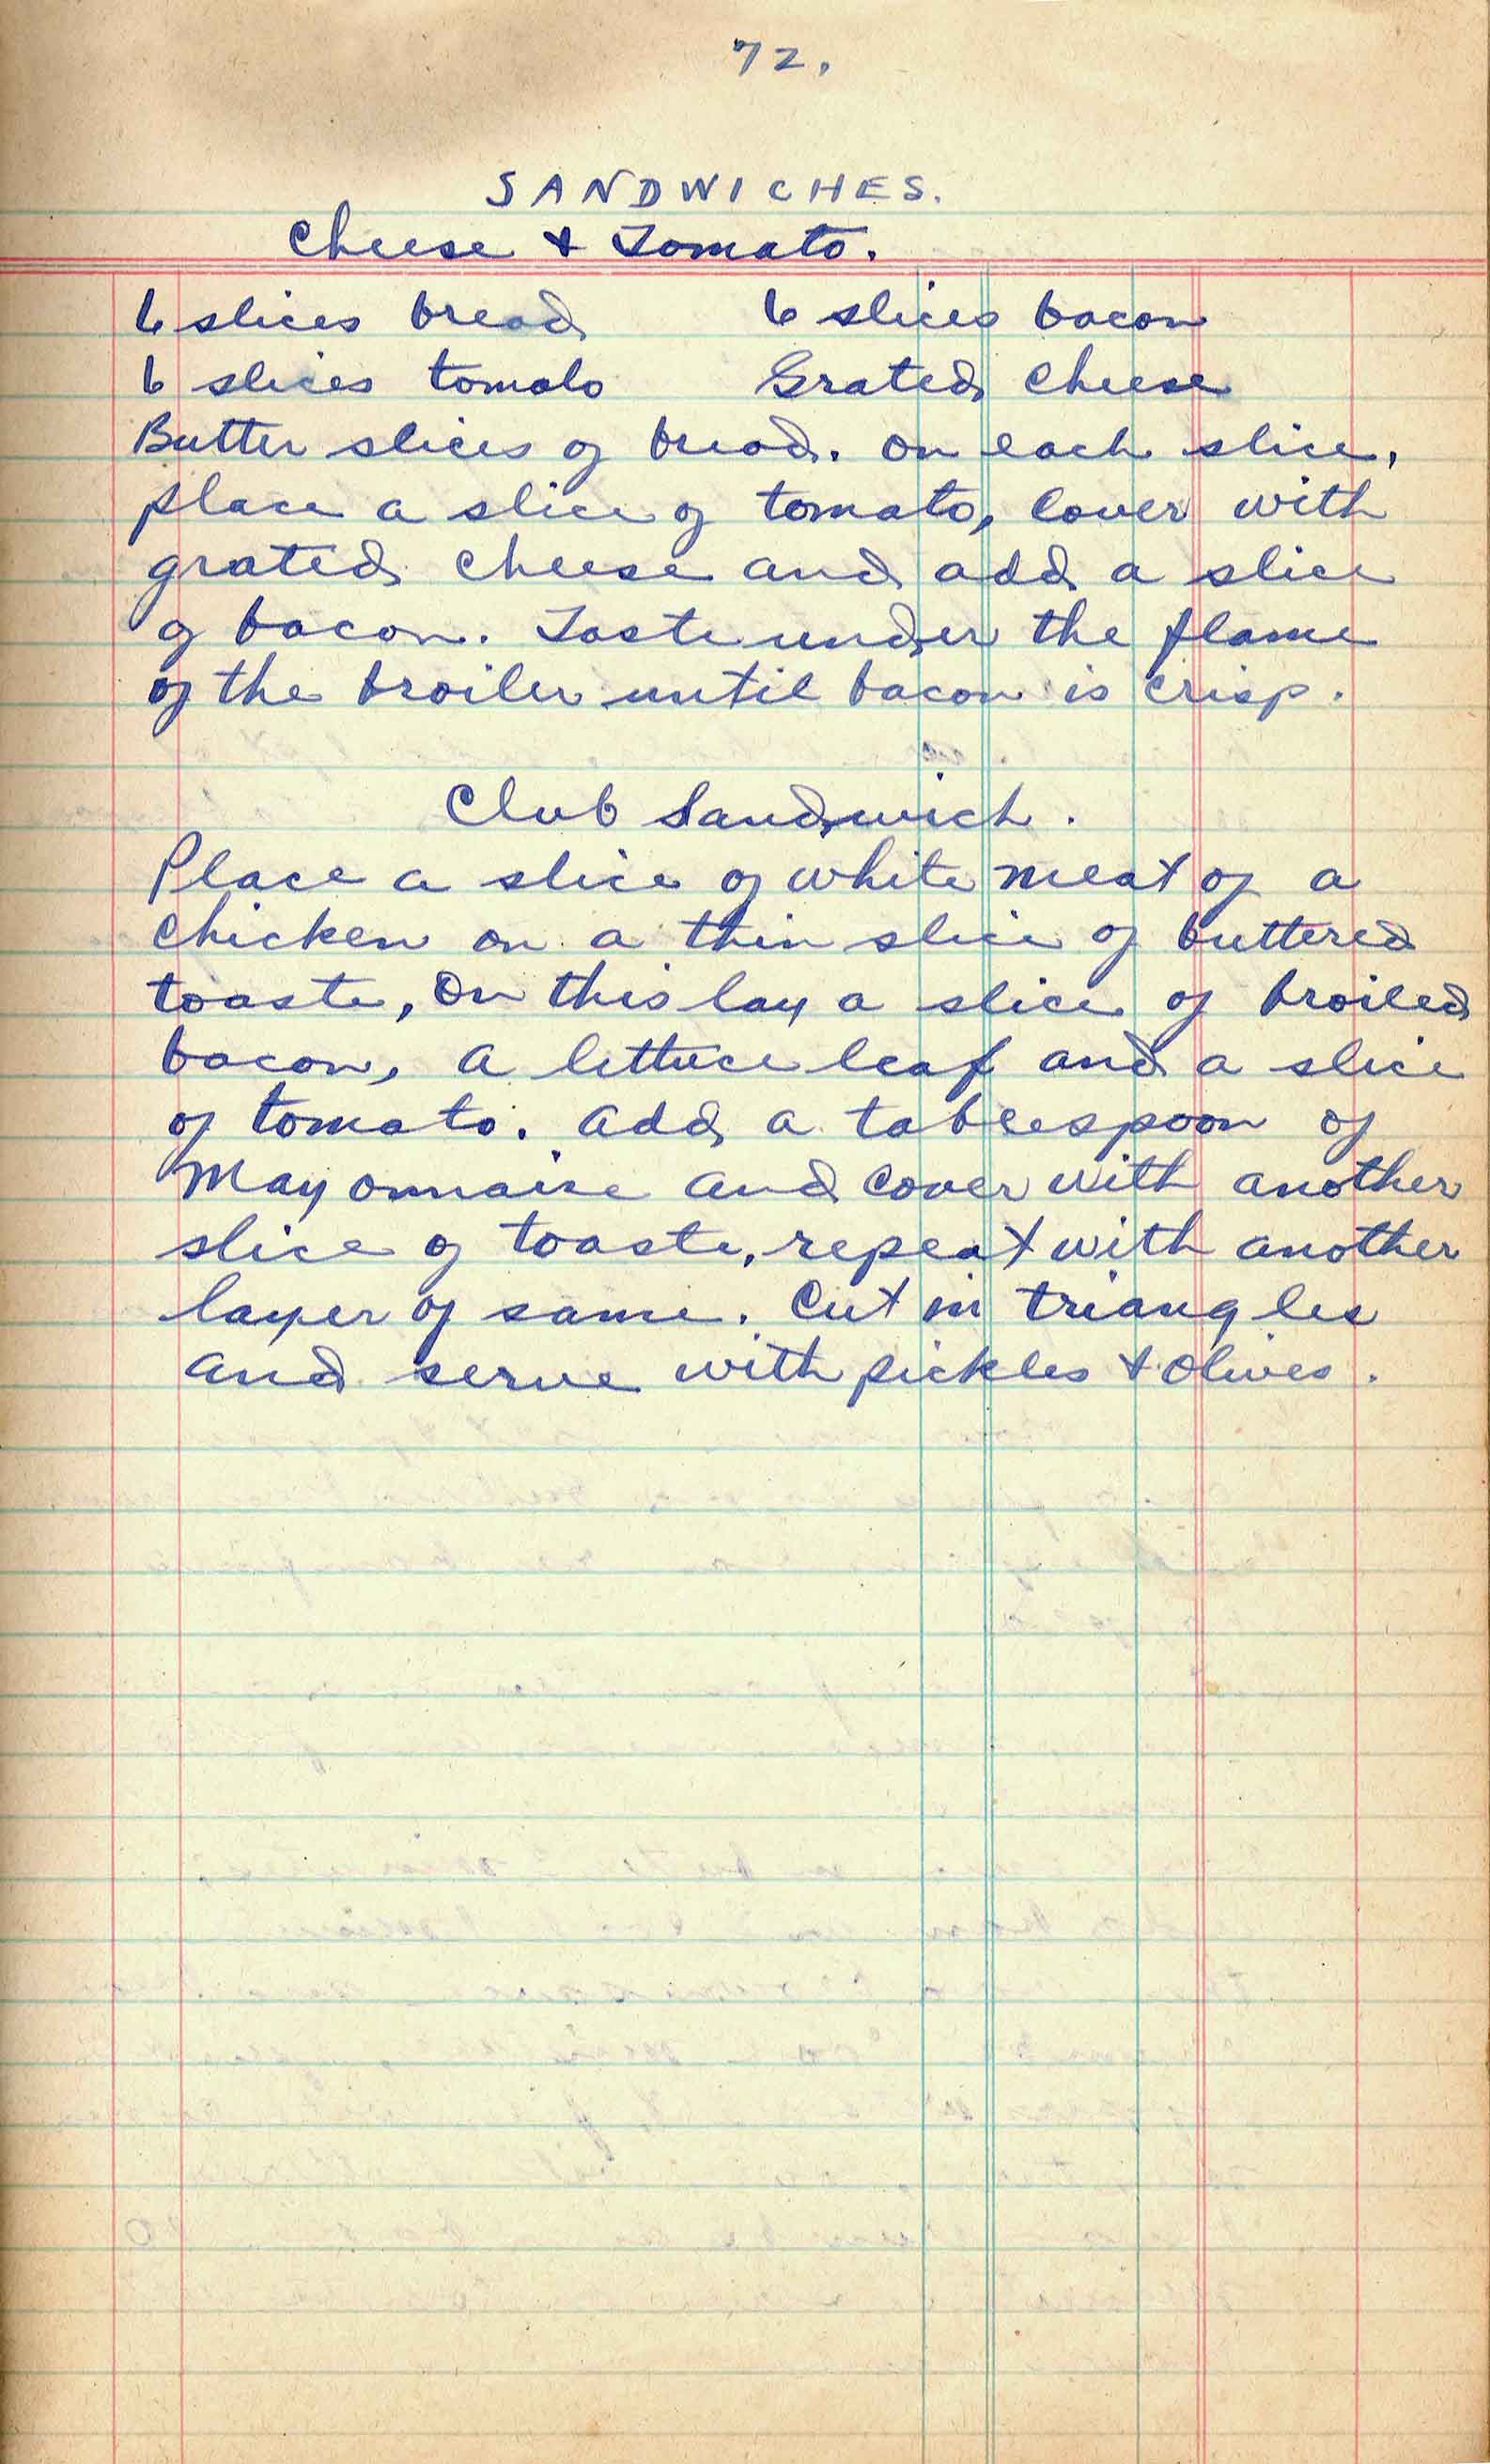 72.
SANDWICHES.
Cheese & Tomato.
6 slices bread 6 slices bacon
6 slices tomato Grated Cheese
Butter slices of bread. On each slice,
place a slice of tomato, cover with
grated cheese and add a slice
of bacon. Toaste under the flame
of the broiler until bacon is crisp.
Club Sandwich.
Place a slice of white meat of a
chicken on a thin slice of buttered
toaste, On this lay a slice of broiled
bacon, a lettuce leaf and a slice
of tomato. Add a tablespoon of
Mayonnaise and cover with another
slice of toaste, repeat with another
layer of same. Cut in triangles
and serve with pickles & Olives.